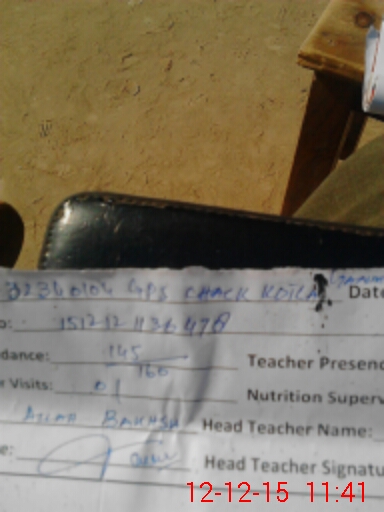 32360104 GPS CHACK KOILA Date
o: 151212113647
dance: 145/160 Teacher Presenc
r Visits: 01 Nutrition Superv
ALLAH BAKHSH Head Teacher Name:
e: Head Teacher Signatu
12-12-15 11:41